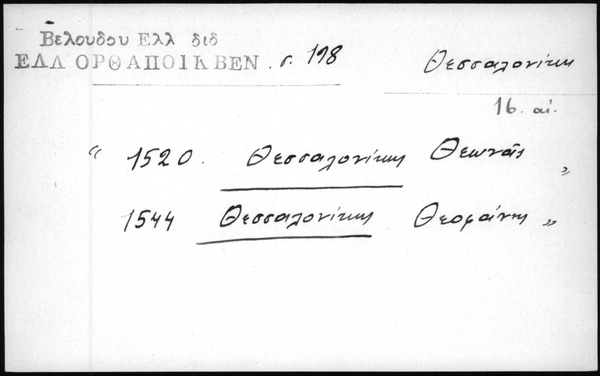 Βελουδου Ελλ διδ
ΕΛΛ ΟΡΘΑΠΟΙΚ ΒΕΝ. σ. 198
Θεσσαλονίκη
16. αἰ.
“ 1520. Θεσσαλονίκης Θεωνᾶς „
1544 Θεσσαλονίκης Θεοφάνης „